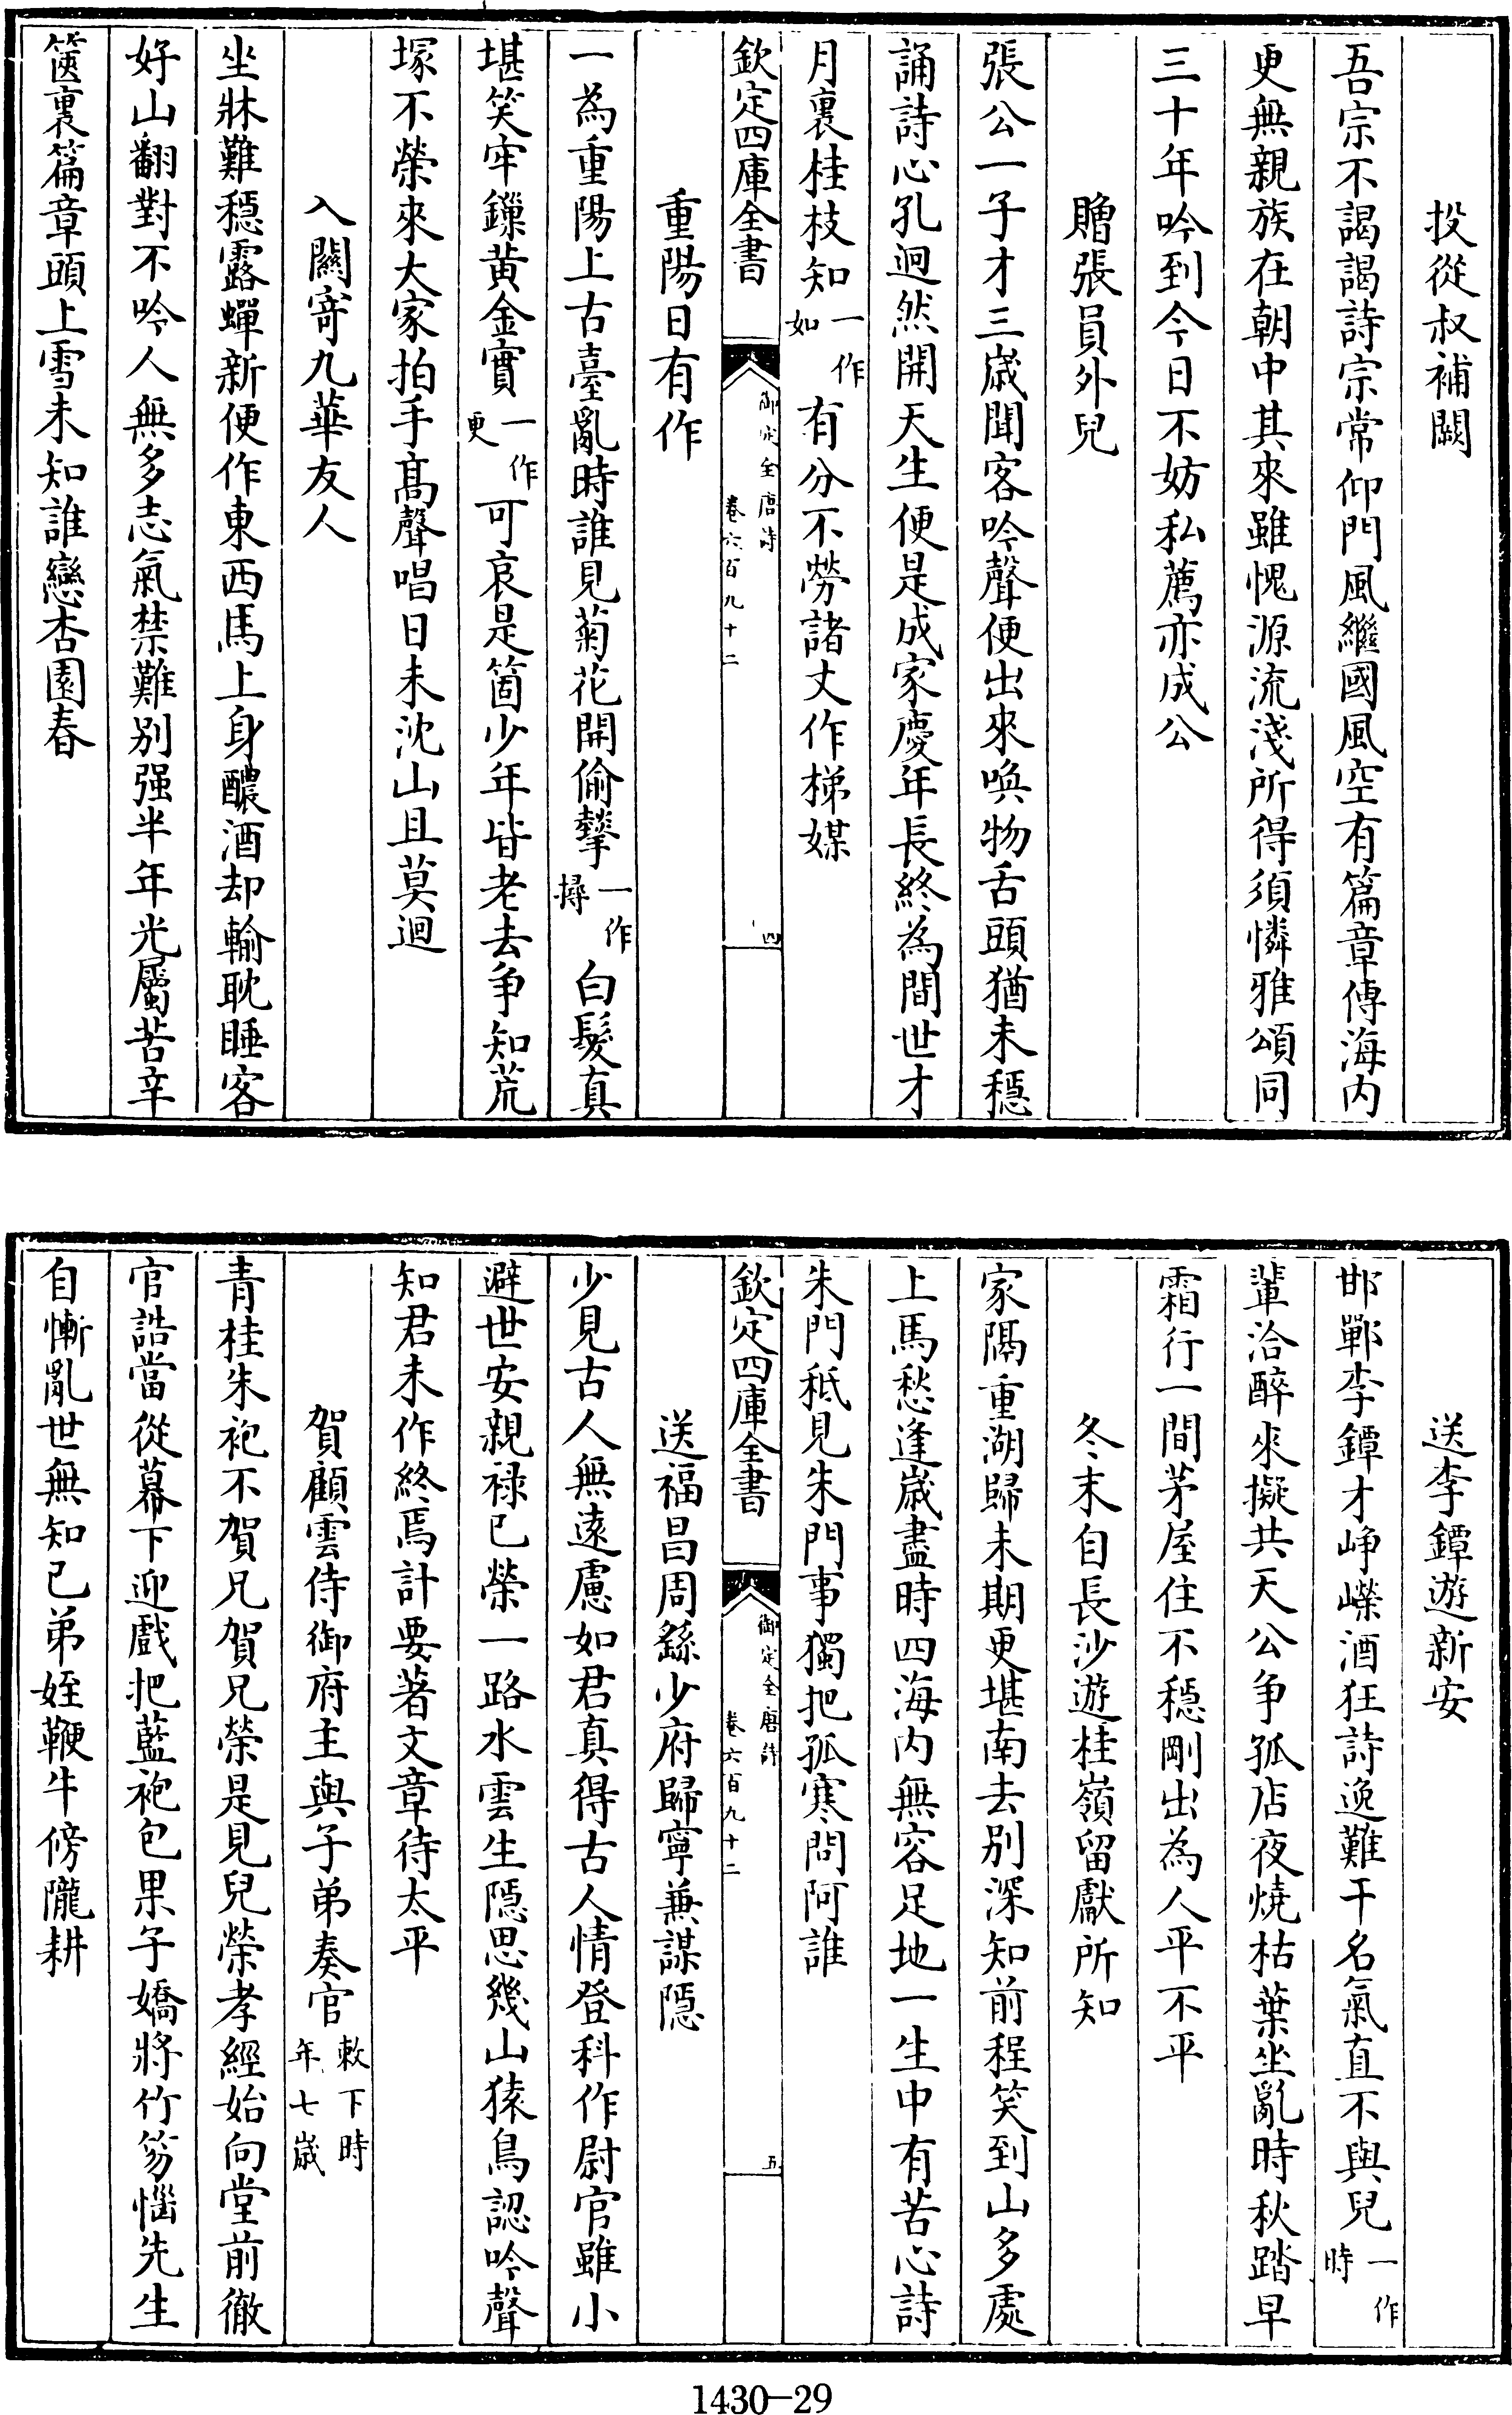 投從叔補闕
吾宗不謁謁詩宗常仰門風繼國風空有篇章傳海内
更無親族在朝中其來雖愧源流淺所得須憐雅頌同
三十年吟到今日不妨私薦亦成公
贈張員外兒
張公一子才三歲聞客吟聲便出來喚物舌頭猶未穩
誦詩心孔迥然開天生便是成家慶年長終為間世才
月裏桂枝知一作如有分不勞諸丈作梯媒
欽定四庫全書 御定全唐詩 卷六百九十二 四
重陽日有作
一為重陽上古臺亂時誰見菊花開偷撆一作撏白髮真
堪笑牢鏁黄金實一作更可哀是箇少年皆老去争知荒
塚不榮來大家拍手髙聲唱日未沈山且莫迴
入關寄九華友人
坐牀難穩露蟬新便作東西馬上身醲酒却輸耽睡客
好山翻對不吟人無多志氣禁難别强半年光屬苦辛
篋裏篇章頭上雪未知誰戀杏園春
送李鐔遊新安
邯鄲李鐔才崢嶸酒狂詩逸難干名氣直不與兒一作時
輩洽醉來擬共天公争孤店夜燒枯葉坐亂時秋踏早
霜行一間茅屋住不穩剛出為人平不平
冬末自長沙遊桂嶺留獻所知
家隔重湖歸未期更堪南去别深知前程笑到山多處
上馬愁逢歲盡時四海内無容足地一生中有苦心詩
朱門秪見朱門事獨把孤寒問阿誰
欽定四庫全書 御定全唐詩 卷六百九十二 五
送福昌周繇少府歸寧兼謀隱
少見古人無遠慮如君真得古人情登科作尉官雖小
避世安親禄已榮一路水雲生隱思幾山猿鳥認吟聲
知君未作終焉計要著文章待太平
賀顧雲侍御府主與子弟奏官敕下時年七歲
青桂朱袍不賀兄賀兄榮是見兒榮孝經始向堂前徹
官誥當從幕下迎戲把藍袍包果子嬌將竹笏惱先生
自慚亂世無知己弟姪鞭牛傍隴耕
1430-29